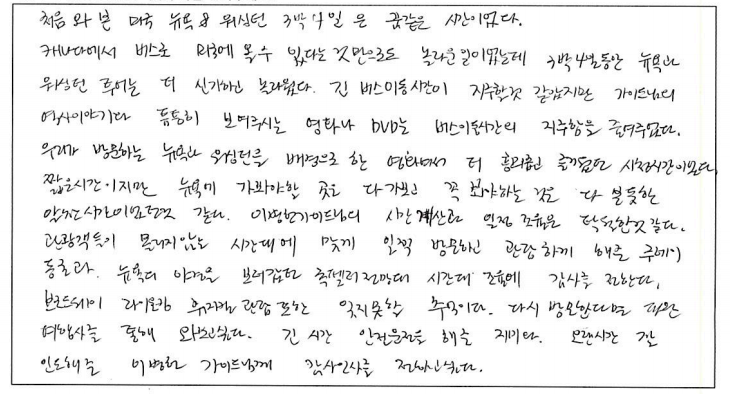 처음 와 본 미국 뉴욕 & 워싱턴 3박 4일 은 꿈같은 시간이었다.
캐나다에서 버스로 미국에 올 수 있다는 것만으로도 놀라운 일이었는데 3박 4일동안 뉴욕과
워싱턴 투어는 더 신기하고 놀라웠다. 긴 버스이동시간이 지루할것 같았지만 가이드님의
역사이야기와 틈틈히 보여주시는 영화나 DVD는 버스이동시간의 지루함을 줄여주었다.
우리가 방문하는 뉴욕과 워싱턴을 배경으로 한 영화여서 더 흥미롭고 즐거웠던 시청시간이었다.
짧은시간이지만 뉴욕에 가봐야할 곳은 다 가보고 꼭 봐야하는 것은 다 본듯한
알찬시간이었던것 같다. 이병헌가이드님의 시간 계산과 일정 조율은 탁월한것 같다.
관광객들이 몰리지않는 시간대에 맞게 일찍 방문하고 관람하게 해준
동굴과. 뉴욕의 야경을 보여줬던 록펠러전망대 시간대 조율에 감사를 전한다,
브로드웨이 라이온킹 뮤지컬 관람 또한 잊지못할 추억이다. 다시 방문한다면
여행사를 통해 와보고싶다. 긴 시간 안전운전을 해준 오랜시간 잘
인도해준 이병헌 가이드님께 감사인사를 전하고싶다.